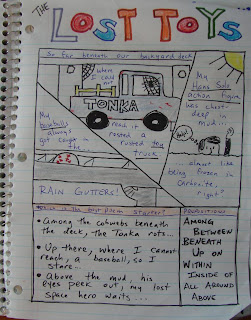 THE LOST TOYS
So far beneath our backyard deck
where
I could not
TONKA
reach it
rusted a
rusted toy
truck
My Han Solo
action figure
was chest-
deep in
mud in
My
baseballs
always
got caught in
the...
... almost like
being frozen in
Carbonite,
right?
RAIN GUTTERS!
Poem
Starter?
• Among the cobwebs beneath
the deck, the Tonka rots...
• Up there, where I cannot
reach, a baseball, so I
stare...
• Above the mud his
eyes peek out, my lost
space hero waits...
PREPOSITIONS
AMONG
BETWEEN
BENEATH
UP ON
WITHIN
INSIDE OF
ALL AROUND
ABOVE